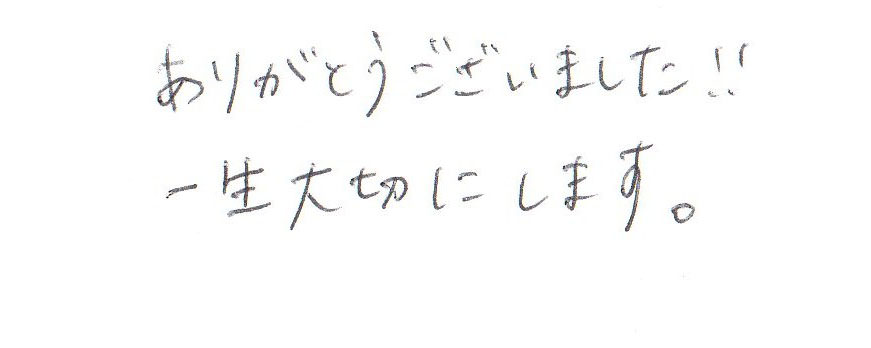 ありがとうございました!!
一生大切にします。